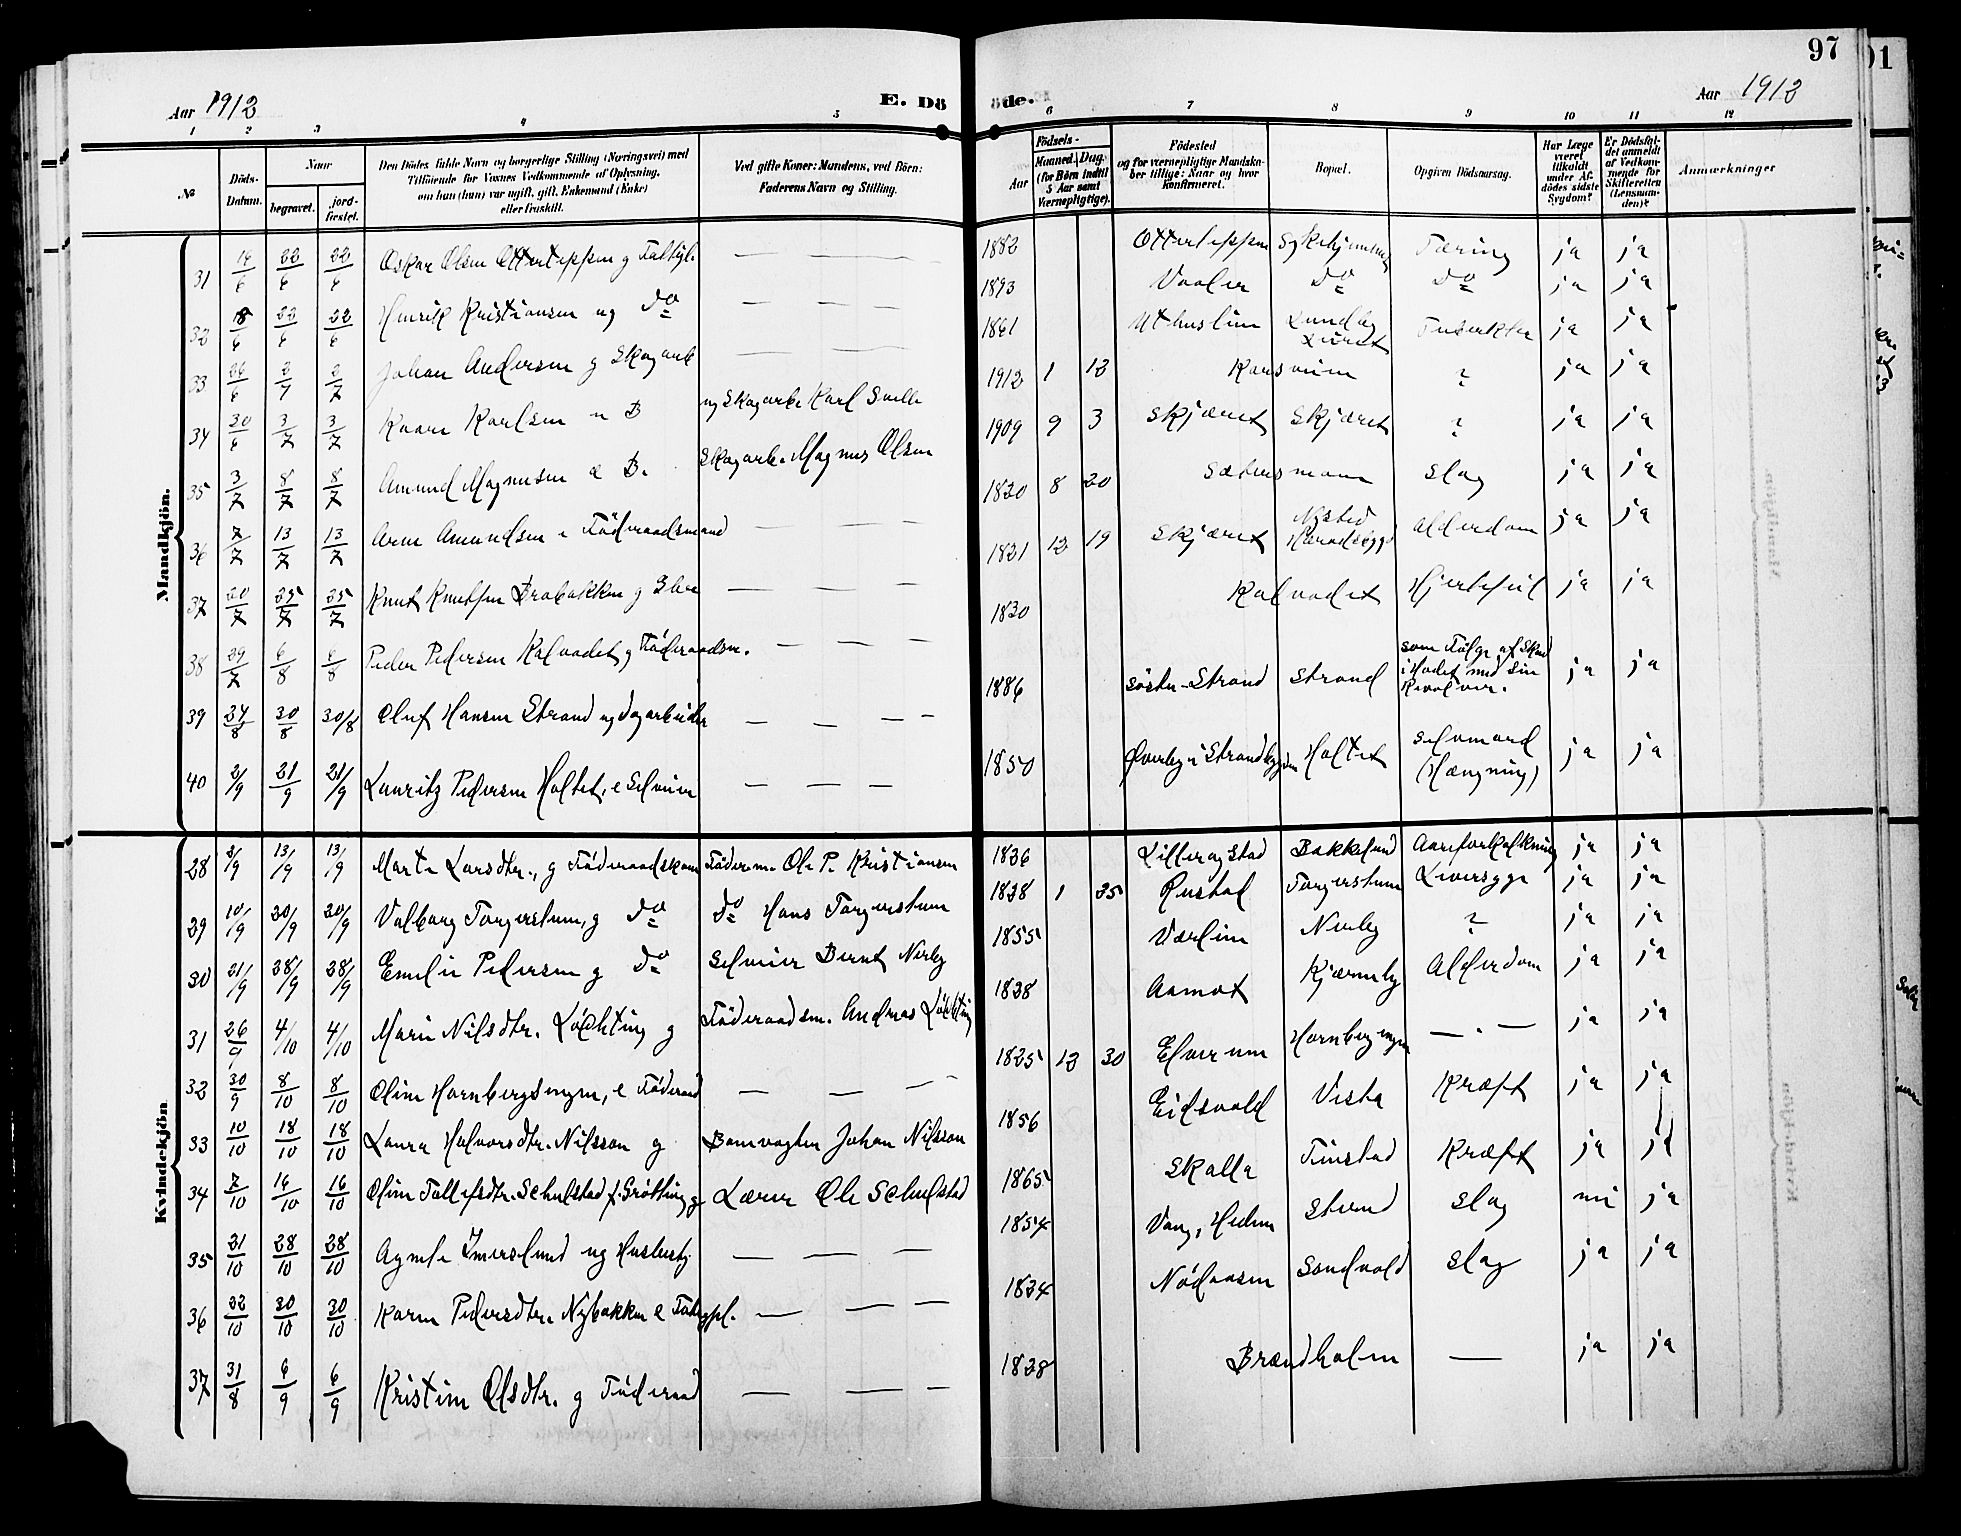 97
Aar 1912
E. Døde.
Aar 1912
1 2 3 4 5 6 7 8 9 10 11 12
№
Döds-Datum.
Naar
begravet.
jord-fæstet.
Den Dödes fulde Navn og borgerlige Stilling (Næringsvei) med
Tilföiende for Voxnes Vedkommende af Oplysning,
om han (hun) var ugift, gift, Enkemand (Enke)
eller fraskilt.
Ved gifte Koner: Mandens, ved Börn:
Faderens Navn og Stilling.
Födsels-
Aar
Maaned. Dag.
(for Börn indtil
5 Aar samt
Værnepligtige).
Födested
og for værnepligtige Mandska-
ber tillige: Naar og hvor
konfirmeret.
Bopæl.
Opgiven Dödsaarsag.
Har Læge
været
tilkaldt
under Af-
dödes sidste
Sygdom?
Er Dödsfal-
det anmeldt
af Vedkom-
mende for
Skifteretten
(Lensman-
den)?
Anmærkninger
Mandkjön.
31 14/6 22/6 22/6 Oskar Olsen Ottertippen g — — — 1882 Ottertippen Sykehjemmet Tæring ja ja
32 18/6 22/6 22/6 Henrik Kristiansen ug do — — — 1893 Vaaler do do ja ja
33 26/6 2/7 2/7 Johan Andersen g Skogarb — — — 1861 Uthuslien Lundby ja ja
34 30/6 3/7 3/7 Kaare Karlsen u B ug Skogarb. Karl 1912 1 12 ? ja ja
35 3/7 8/7 8/7 Amund Magnussen e B. Skogarb. Magnus Olsen 1909 9 3 Skjæret Skjæret ? ja ja
36 7/7 13/7 13/7 Arne Amundsen e Föderaadsmand — — — 1830 8 20 Sætersmoen Slag ja ja
37 20/7 25/7 25/7 Knut Knutsen Brobakken g — — — 1821 12 19 Skjæret Nysted Alderdom ja ja
38 29/7 6/8 6/8 Peder Pedersen Kalvadet g Föderaadsm. — — — 1830 Kalvadet Hjertefeil ja ja
39 24/8 30/8 30/8 Oluf Hansen Strand ug dagarbeider — — — 1886 Söstu-Strand Strand som Fölge af Skud
i Hodet med sin
Revolver. ja ja
40 2/9 21/9 21/9 Lauritz Pedersen Holtet, e Selveier — — — 1850 Överby i Strandbygden Holtet Selvmord
(Hængning) ja ja
Kvindekjön
28 8/9 13/9 13/9 Marte Larsdtr., g Föderaadskone Föderm. Ole P. Kristiansen 1836 Lilleragstad Bakkelund Aareforkalkning ja ja
29 10/9 20/9 20/9 Valborg Torgerstuen, g do do Hans Torgerstuen 1838 1 25 Rustad Torgerstuen Leversyge ja ja
30 21/9 28/9 28/9 Emelie Pedersen g do Selveier Bernt Nerby 1855 Værlien Nerby ? ja ja
31 26/9 4/10 4/10 Marie Nilsdtr. Löchting g Föderaadsm. Andreas Löchting 1838 Aamot Kjærneby Alderdom ja ja
32 30/9 8/10 8/10 Oline Hornbergsengen, e Föderaad — — — 1825 12 30 Elverum Hornbergengen — " — ja ja
33 10/10 18/10 18/10 Laura Halvorsdtr. Nilsson g Banevogter Johan Nilsson 1856 Eidsvold Vesta Kræft ja ja
34 7/10 16/10 16/10 Oline Tollefsdtr. Schulstad f. Grötting g Lærer Ole Schulstad 1865 Skalla Finstad Kræft ja ja
35 21/10 28/10 28/10 Agnete Imerslund ug Husbesty. — — — 1854 Vang, Hedm Stend Slag nei ja
36 22/10 30/10 30/10 Karen Pedersdtr. Nybakken e — — — 1834 Nödaasen Sandvold Slag ja ja
37 31/8 6/9 6/9 Kristine Olsdtr. g Föderaad — — — 1828 Brændholen — ja ja